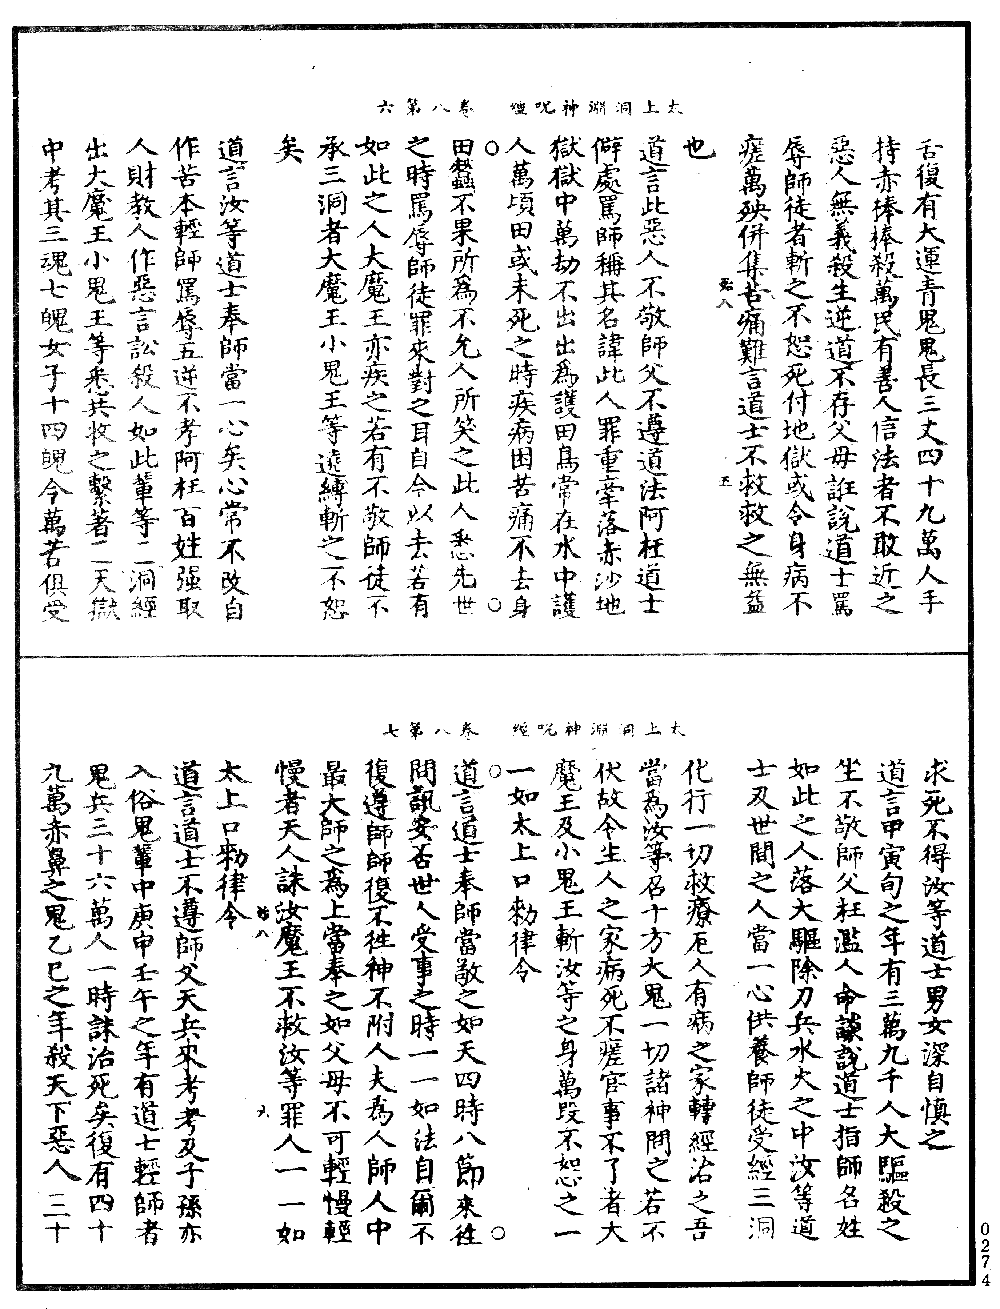 太上洞淵神呪經　卷八第六
舌復有大運青鬼鬼長三丈四十九萬人手
持赤棒棒殺萬民有善人信法者不敢近之
惡人無義殺生逆道不存父母誑說道士罵
辱師徒者斬之不恕死付地獄或令身病不
瘥萬殃併集苦痛難言道士不救救之無益
也
道言此惡人不敬師父不遵道法阿枉道士
僻處罵師稱其名諱此人罪重牽落赤沙地
獄獄中萬劫不出出爲護田鳥常在水中護
人萬頃田或未死之時疾病困苦痛不去身
田蠶不果所爲不允人所笑之此人悉先世
之時罵辱師徒罪來對之耳自今以去若有
如此之人大魔王亦疾之若有不敬師徒不
承三洞者大魔王小鬼王等遠縛斬之不恕
矣
道言汝等道士奉師當一心矣心常不改自
作苦本輕師罵辱五逆不孝阿枉百姓強取
人財教人作惡言訟殺人如此輩等二洞經
出大魔王小鬼王等悉共收之繫著二天獄
中考其三魂七魄女子十四魄令萬苦俱受
太上洞淵神呪經　卷八第七
求死不得汝等道士男女深自慎之
道言甲寅旬之年有三萬九千人大驅殺之
坐不敬師父枉濫人命謀說道士指師名姓
如此之人落大驅除刀兵水火之中汝等道
士及世間之人當一心供養師徒受經三洞
化行一切救療厄人有病之家轉經治之吾
當爲汝等召十方大鬼一切諸神問之若不
伏故令生人之家病死不瘥官事不了者大
魔王及小鬼王斬汝等之身萬段不恕之一
一如太上口勑律令
道言道士奉師當敬之如天四時八節來往
問訊安否世人受事之時一一如法自爾不
復遵師師復不往神不附人夫爲人師人中
最大師之爲上當奉之如父母不可輕慢輕
慢者天人誅汝魔王不救汝等罪人一一如
太上口勑律令
道言道士不遵師父天兵來考考及子孫亦
入俗鬼輩中庚申壬午之年有道士輕師者
鬼兵三十六萬人一時誅治死矣復有四十
九萬赤鼻之鬼乙巳之年殺天下惡人三十
0274